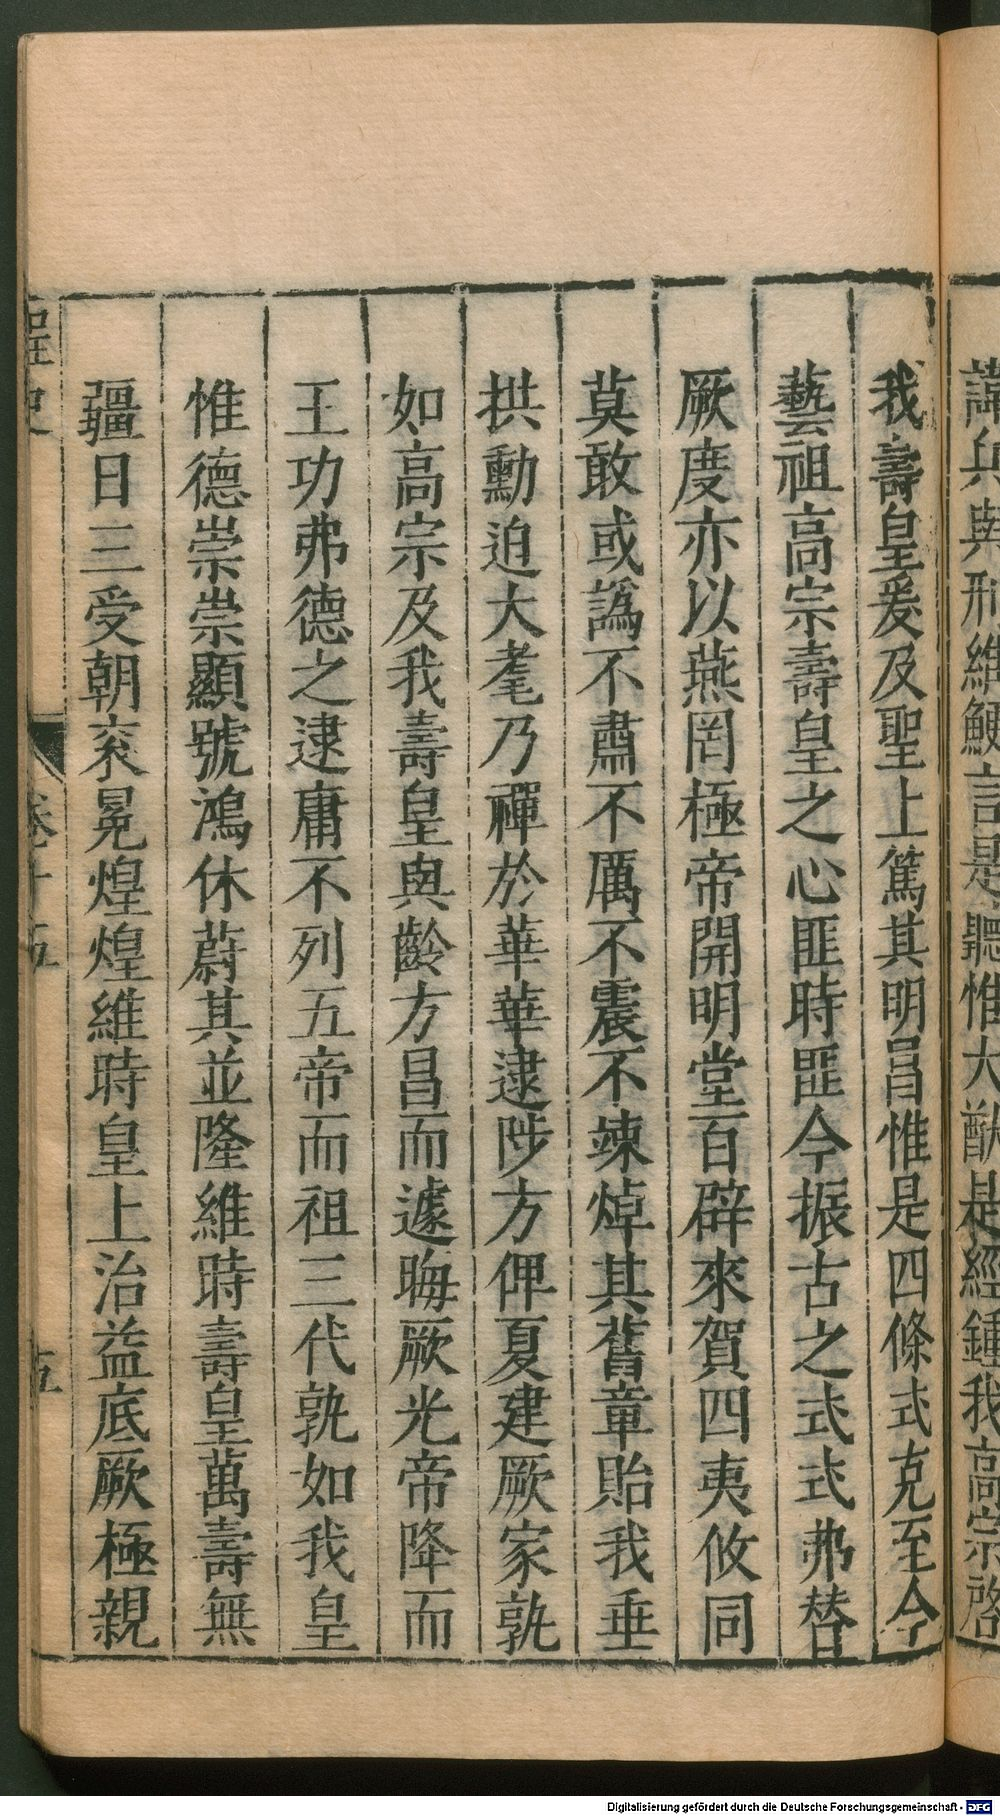 我壽皇爰及聖上篤其明昌惟是四條式克至今
藝祖高宗壽皇之心匪時匪今振古之式式弗替
厥度亦以燕罔極帝開明堂百辟來賀四夷攸同
莫敢或譌不肅不厲不震不竦焯其舊章貽我垂
拱勳迫大耄乃禪於華華逮陟方俾夏建厥家孰
如高宗及我壽皇與齡方昌而遽晦厥光帝降而
王功弗德之逮庸不列五帝而祖三代孰如我皇
惟德崇崇顯號鴻休蔚其並隆維時壽皇萬壽無
疆日三受朝衮冕煌煌維時皇上治益底厥極親
桯史
卷十五
五
兵與刑維鯁言是聽惟大猷是經鍾我高宗啓
Digitalisierung gefördert durch die Deutsche Forschungsgemeinschaft - DFG